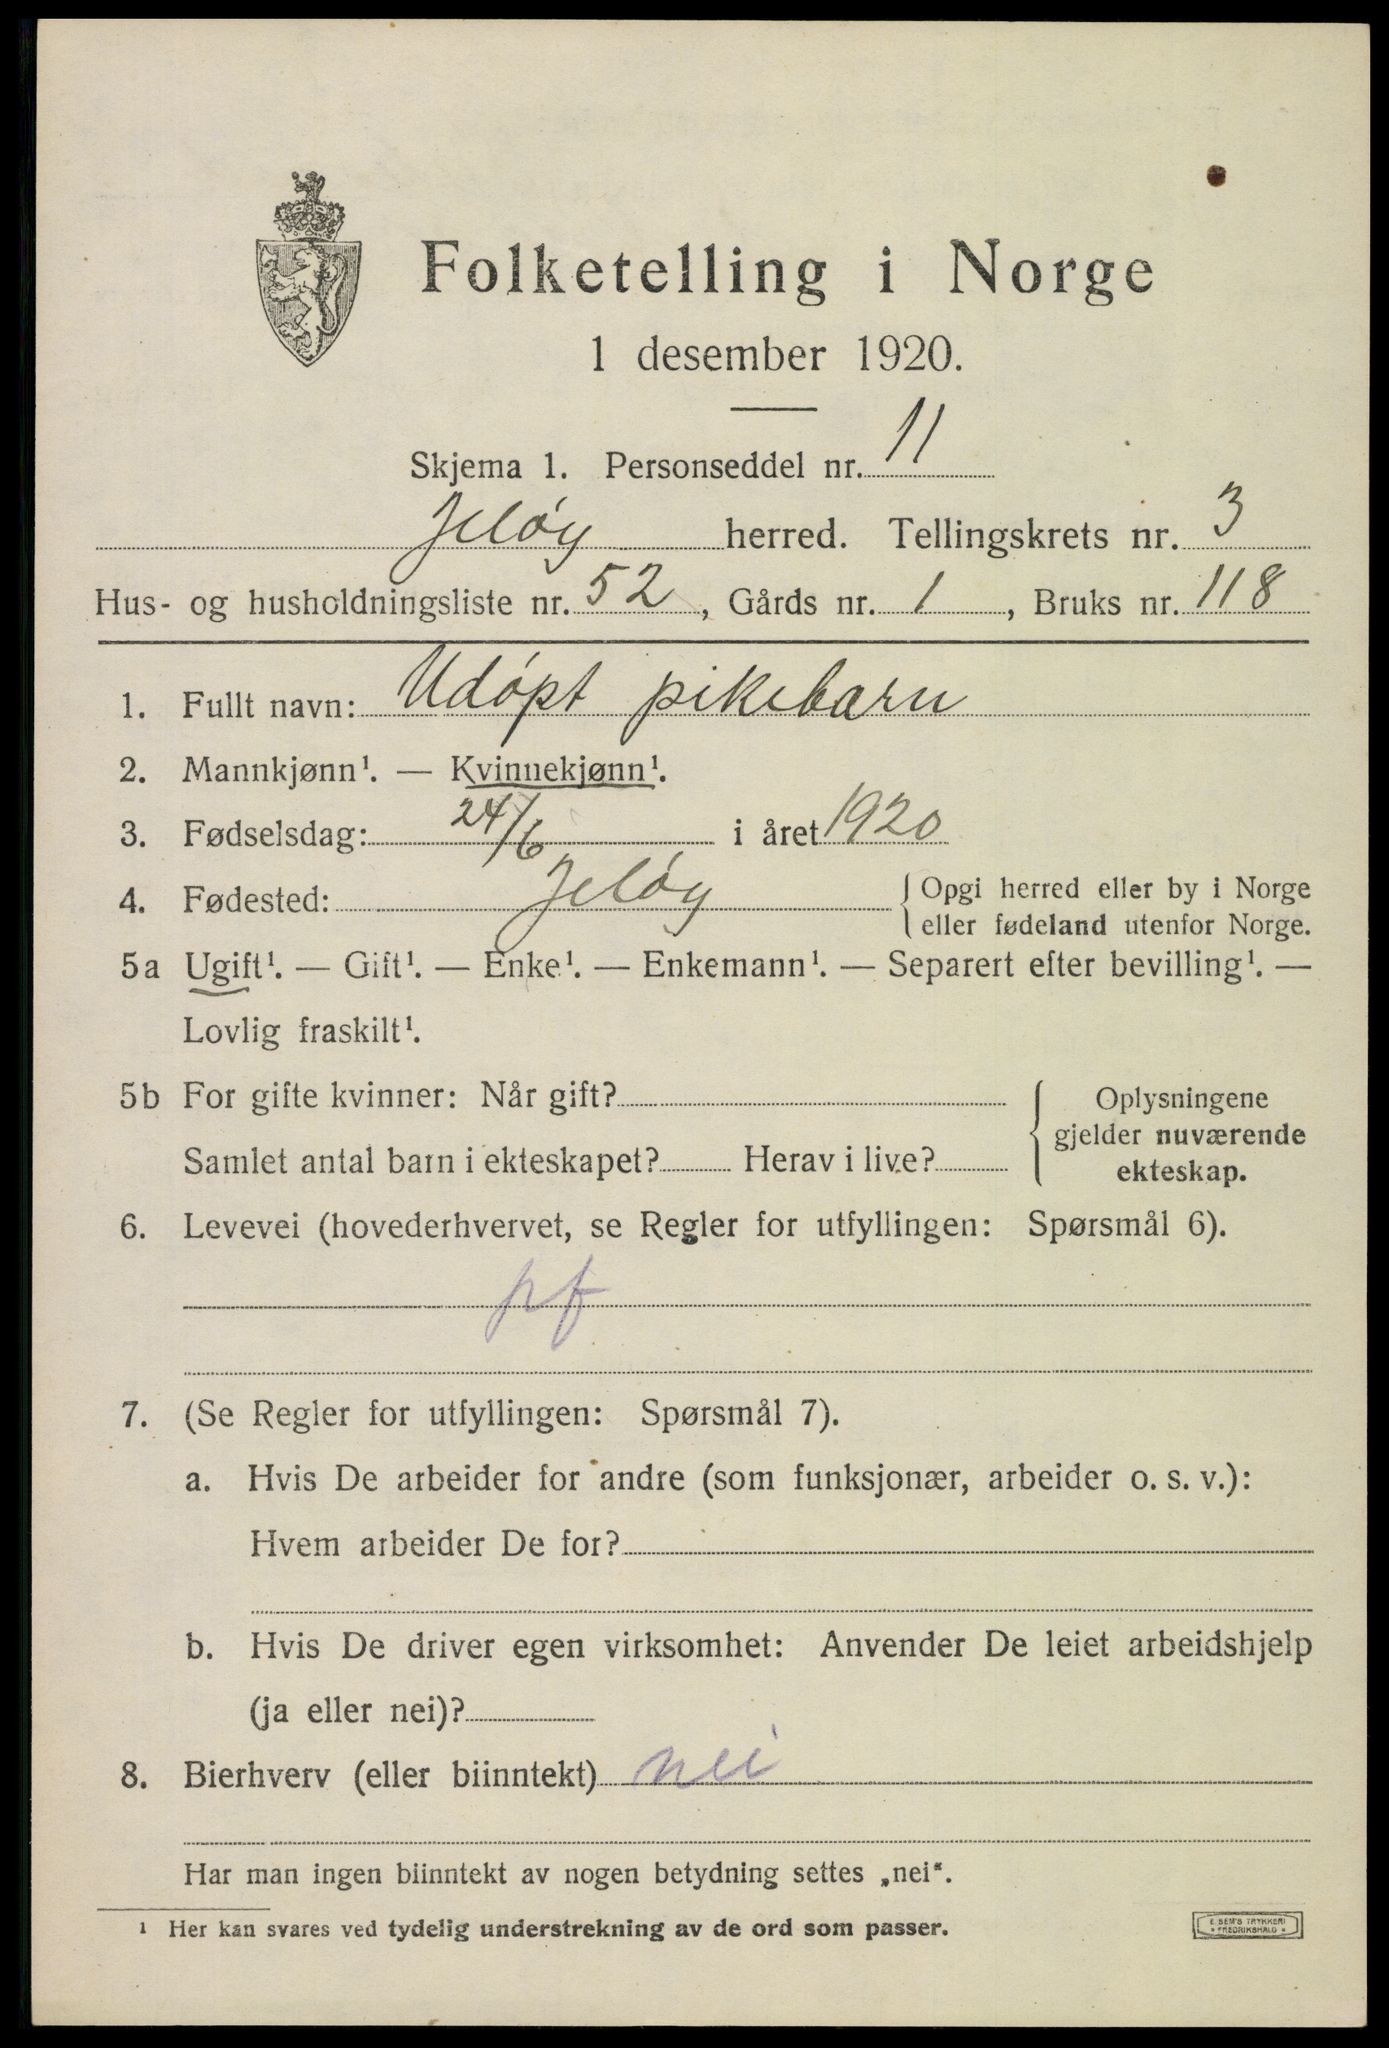 Folketelling i Norge
1 desember 1920.
Skjema 1. Personseddel nr. 11
Jeløy herred. Tellingskrets nr. 3
Hus- og husholdningsliste nr. 52, Gårds nr. 1, Bruks nr. 118
1. Fullt navn: Udøpt pikebarn
2. Mannkjønn¹. — Kvinnekjønn¹.
3. Fødselsdag: 24/6 i året 1920
4. Fødested: Jeløy { Opgi herred eller by i Norge
eller fødeland utenfor Norge.
5a Ugift¹. — Gift¹. — Enke¹. — Enkemann¹. — Separert efter bevilling¹. —
Lovlig fraskilt¹.
5b For gifte kvinner: Når gift?
Samlet antal barn i ekteskapet? Herav i live?
{ Oplysningene
gjelder nuværende
ekteskap.
6. Levevei (hovederhvervet, se Regler for utfyllingen: Spørsmål 6).
pf
7. (Se Regler for utfyllingen: Spørsmål 7).
a. Hvis De arbeider for andre (som funksjonær, arbeider o. s. v.):
Hvem arbeider De for?
b. Hvis De driver egen virksomhet: Anvender De leiet arbeidshjelp
(ja eller nei)?
8. Bierhverv (eller biinntekt) nei
Har man ingen biinntekt av nogen betydning settes „nei“.
¹ Her kan svares ved tydelig understrekning av de ord som passer.
E. SEM'S TRYKKERI
* FREDRIKSHALD *